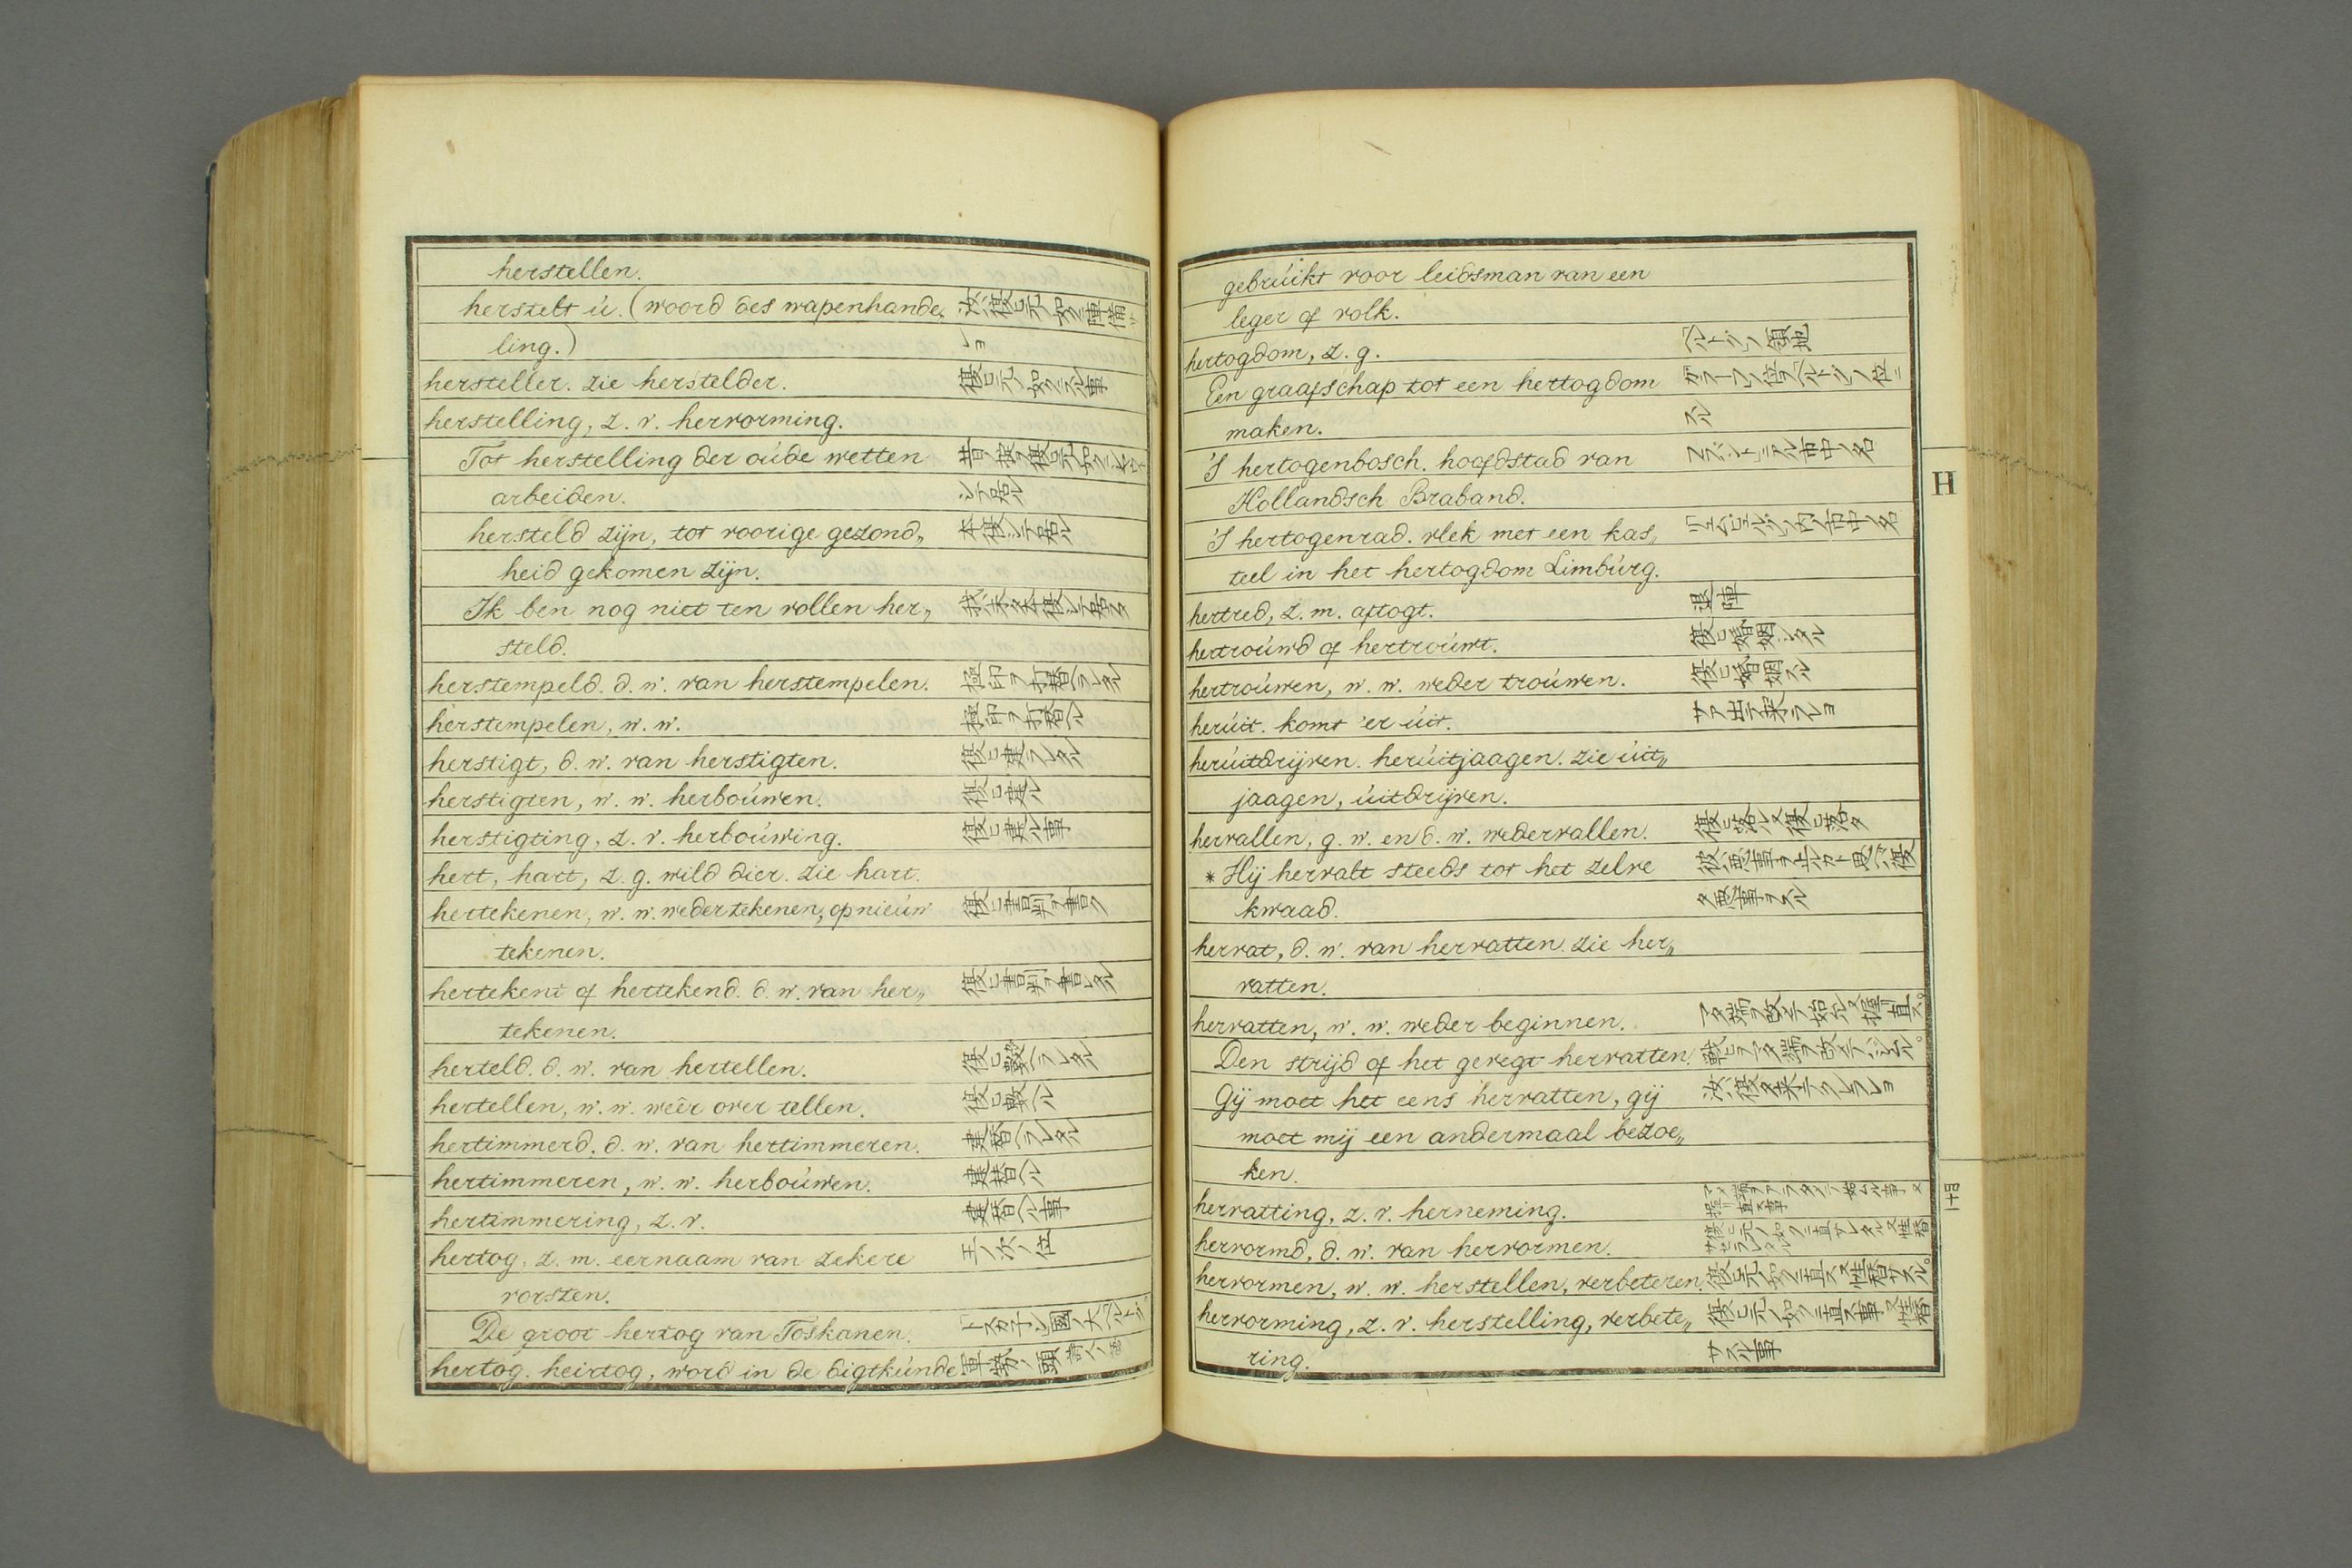 herstellen.
herstelt ú. (woord des wapenhande„ 汝復ビ元ノ如ク陣備
ling.) ショ
hersteller. zie herstelder. 復ビ元ノ如クスル事
herstelling, z. v. hervorming.
Tot herstelling der oúde wetten
arbeiden. シテ居ル
hersteld zijn, tot voorige gezond„ 本復シテ居ル
heid gekomen zijn.
Ik ben nog niet ten vollen her„ 我ハ未タ本復シテ居ラヌ
steld.
herstempeld. d. w. van herstempelen. 極印ヲ打替ヘラレタル
herstempelen, w. w. 極印ヲ打替ヘル
herstigt, d. w. van herstigten. 復ビ建ラレタル
herstigten, w. w. herboúwen. 復ビ建ル
herstigting, z. v. herboúwing. 復ビ建ル事
hert, hart, z. g. wild dier. zie hart.
hertekenen, w. w. weder tekenen, op nieúw 復ビ書判ヲ書ク
tekenen.
hertekent of hertekend. d. w. van her„ 復ビ書判ヲ書レタル
tekenen.
herteld. d. w. van hertellen. 復ビ數ヘラレタル
hertellen, w. w. weêr over tellen. 復ビ數ヘル
hertimmerd. d. w. van hertimmeren. 建替ヘラレタル
hertimmeren, w. w. herboúwen. 建替ヘル
hertimmering, z. v. 建替ヘル事
hertog, z. m. eernaam van zekere 王ノ次ノ位
vorsten.
De groot hertog van Toskanen.
hertog. heirtog, word in de digtkúnde 軍勢ノ頭
gebrúikt voor leidsman van een
leger of volk.
hertogdom, z. g. ヘルトグノ領地
Een graafschap tot een hertogdom
maken. スル
'S hertogenbosch. hoofdstad van
Hollandsch Braband.
'S hertogenrad. vlek met een kas„
teel in het hertogdom Limbúrg.
hertred, z. m. aftogt. 退陣
hertroúwd of hertroúwt. 復ビ婚姻シタル
hertroúwen, w. w. weder troúwen. 復ビ婚姻スル
herúit. komt 'er úit. サア出テ来ラレヨ
herúitdrijven. herúitjaagen. zie úit„
jaagen, úitdrijven.
hervallen, g. w. en d. w. wedervallen. 復ビ落ル又復ビ落タ
* Hij hervalt steeds tot het zelve 彼ハ悪事ヲ止ルカト思ヘバ復
kwaad. タ悪事ヲスル
hervat, d. w. van hervatten. zie her„
vatten.
hervatten, w. w. weder beginnen.
Den strijd of het gevegt hervatten.
Gij moet het eens hervatten, gij 汝復タ来テクレラレヨ
moet mij een andermaal bezoe„
ken.
hervatting, z. v. herneming.
hervormd, d. w. van hervormen.
hervormen, w. w. herstellen, verbeteren.
hervorming, z. v. herstelling, verbete„
ring. サスル事
H